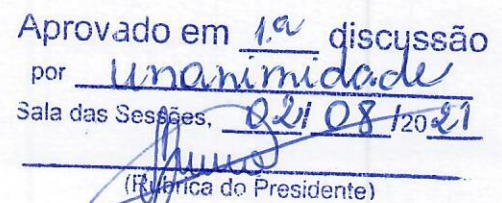 Aprovado em 1ª discussão
por unanimidade
Sala das Sessões, 02/08/2021
(Rubrica do Presidente)